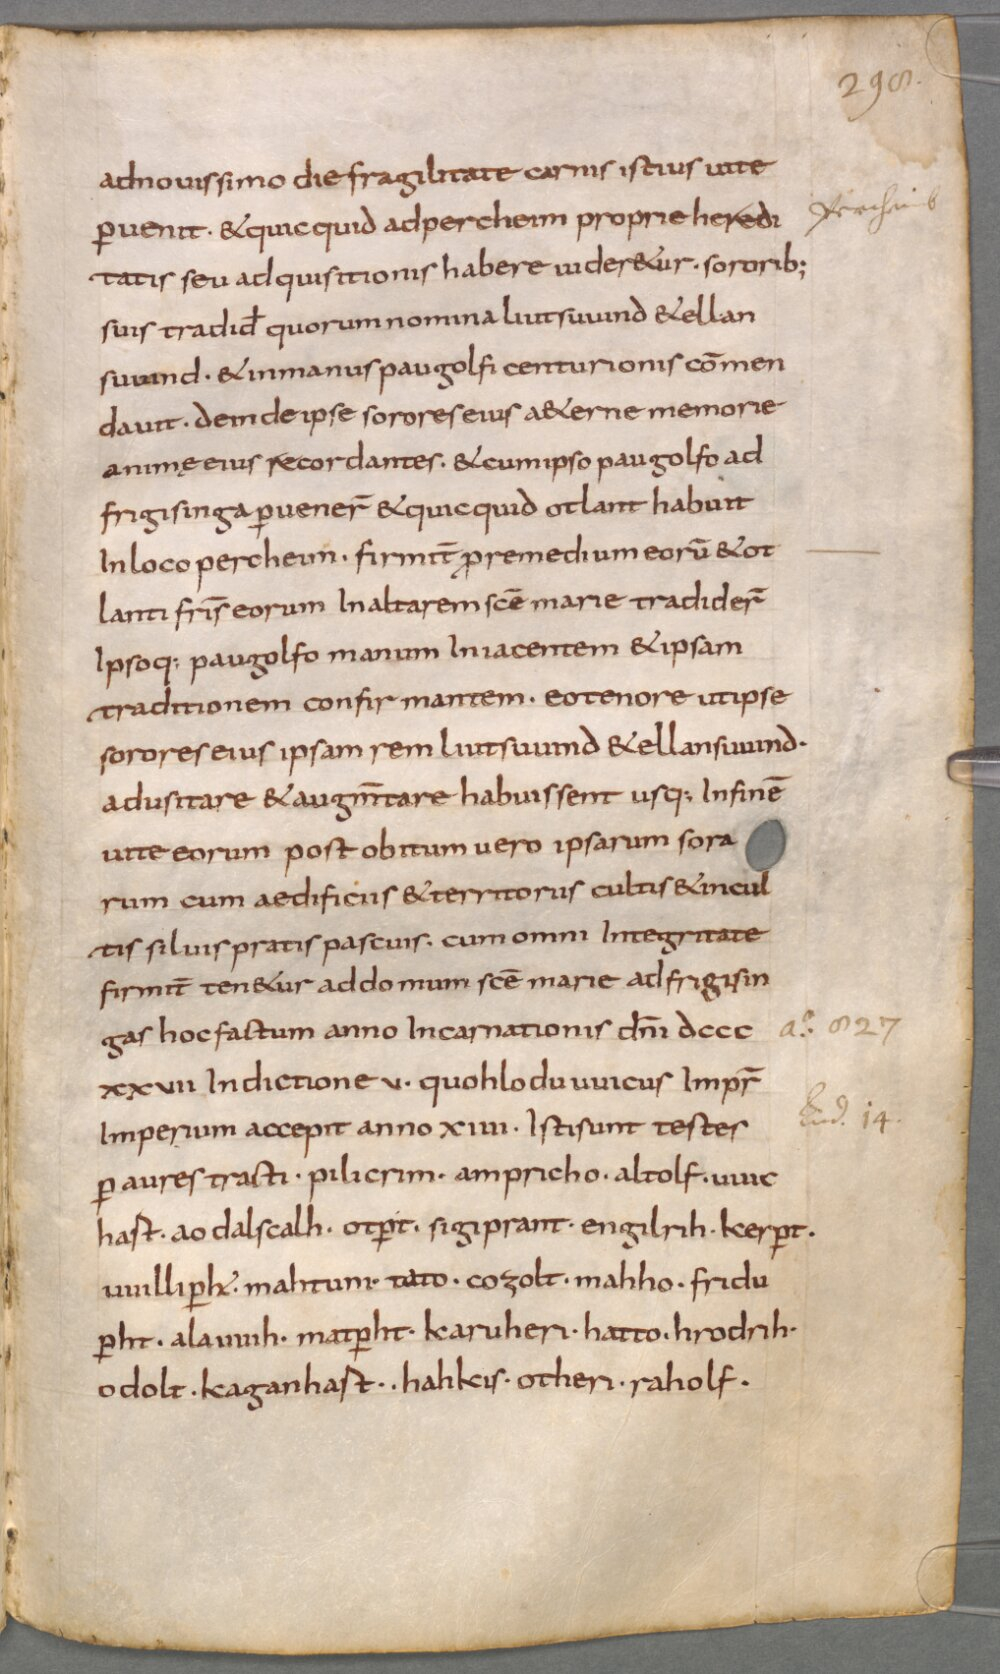 298.
ad novissimo die fragilitate carnis istius vite
ꝑuenit · & quicquid ad percheim proprie heredi
Percheimb
tatis seu adquisitionis habere uider&ur · sororib;
suis tradid̄ quorum nomina liutsuuind & ellan
suuind · & in manus paugolfi centurionis cōmen
dauit · deinde ipse sorores eius a&erne memorie
animę eius recordantes · & cum ipso paugolfo ad
frigisinga ꝑuener̄ & quicquid otlant habuit
In loco percheim · firmit̄ ꝓ remedium eorū & ot
lanti fr̄is eorum In altarem scē marie tradider̄
Ipsoq; paugolfo manum Iniacentem & ipsam
traditionem confirmantem · eo tenore ut ipse
sorores eius ipsam rem liutsuuind & ellansuuind ·
ad usitare & augm̄tare habuissent usq; In finē
uite eorum post obitum uero ipsarum sora
rum cum aedificiis & territoriis cultis & incul
tis siluis pratis pascuis · cum omni Integritate
firmit̄ ten&ur ad domum scē marie ad frigisin
gas hoc factum anno Incarnationis dn̄i dccc
aō. 827
xxvii Indictione v · quo hloduuuicus Impr̄
Imperium accepit anno xiiii · Isti sunt testes
Ind. 14.
ꝑ aures tracti · pilicrim · ampricho · altolf · uuic
hast · aodalscalh · otp̄t · sigiprant · engilrih · kerp̄t ·
uuillip̄h& · mahtuni · tato · cozolt · mahho · fridu
p̄ht · alauuih · matp̄ht · karuheri · hatto · hrodrih ·
odolt · kaganhast · · hahkis · otheri · raholf ·